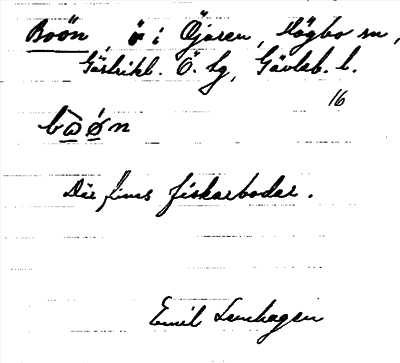 Boön, ö i Öjaren, Högbo sn,
Gästrikl. Ö. tg, Gävleb. l.
16
bo͕ǿn
Där finns fiskarbodar.
Emil Lenhagen